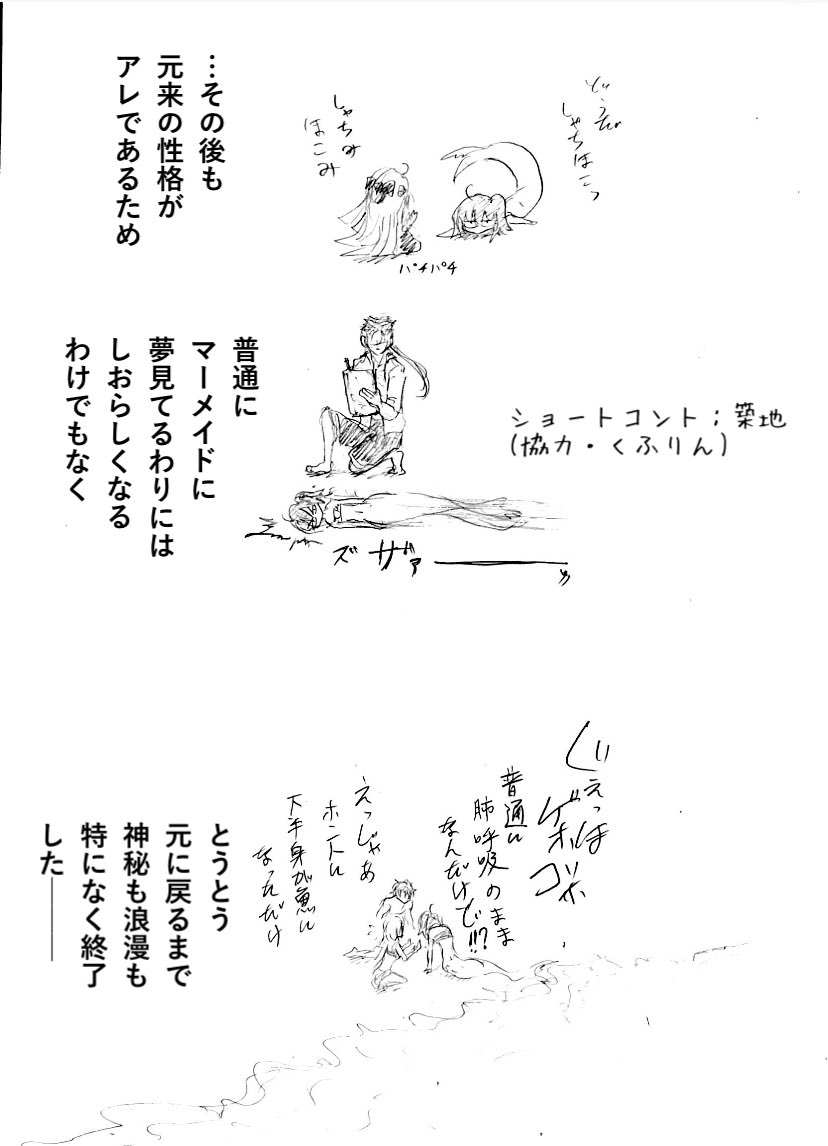 …その後も
元来の性格が
アレであるため
どうぞ
しゃちほこっ
しゃちみ
ほこみ
パチパチ
普通に
マーメイドに
夢見てるわりには
しおらしくなる
わけでもなく
ショートコント；築地
(協力・くふりん)
ズザァーーーッ
ぐぇっほ
ゲホ
ゴホ
普通に
肺呼吸のまま
なんだけど!!?
えっじゃあ
ホントに
下半身が魚に
なっただけ
とうとう
元に戻るまで
神秘も浪漫も
特になく終了
した――